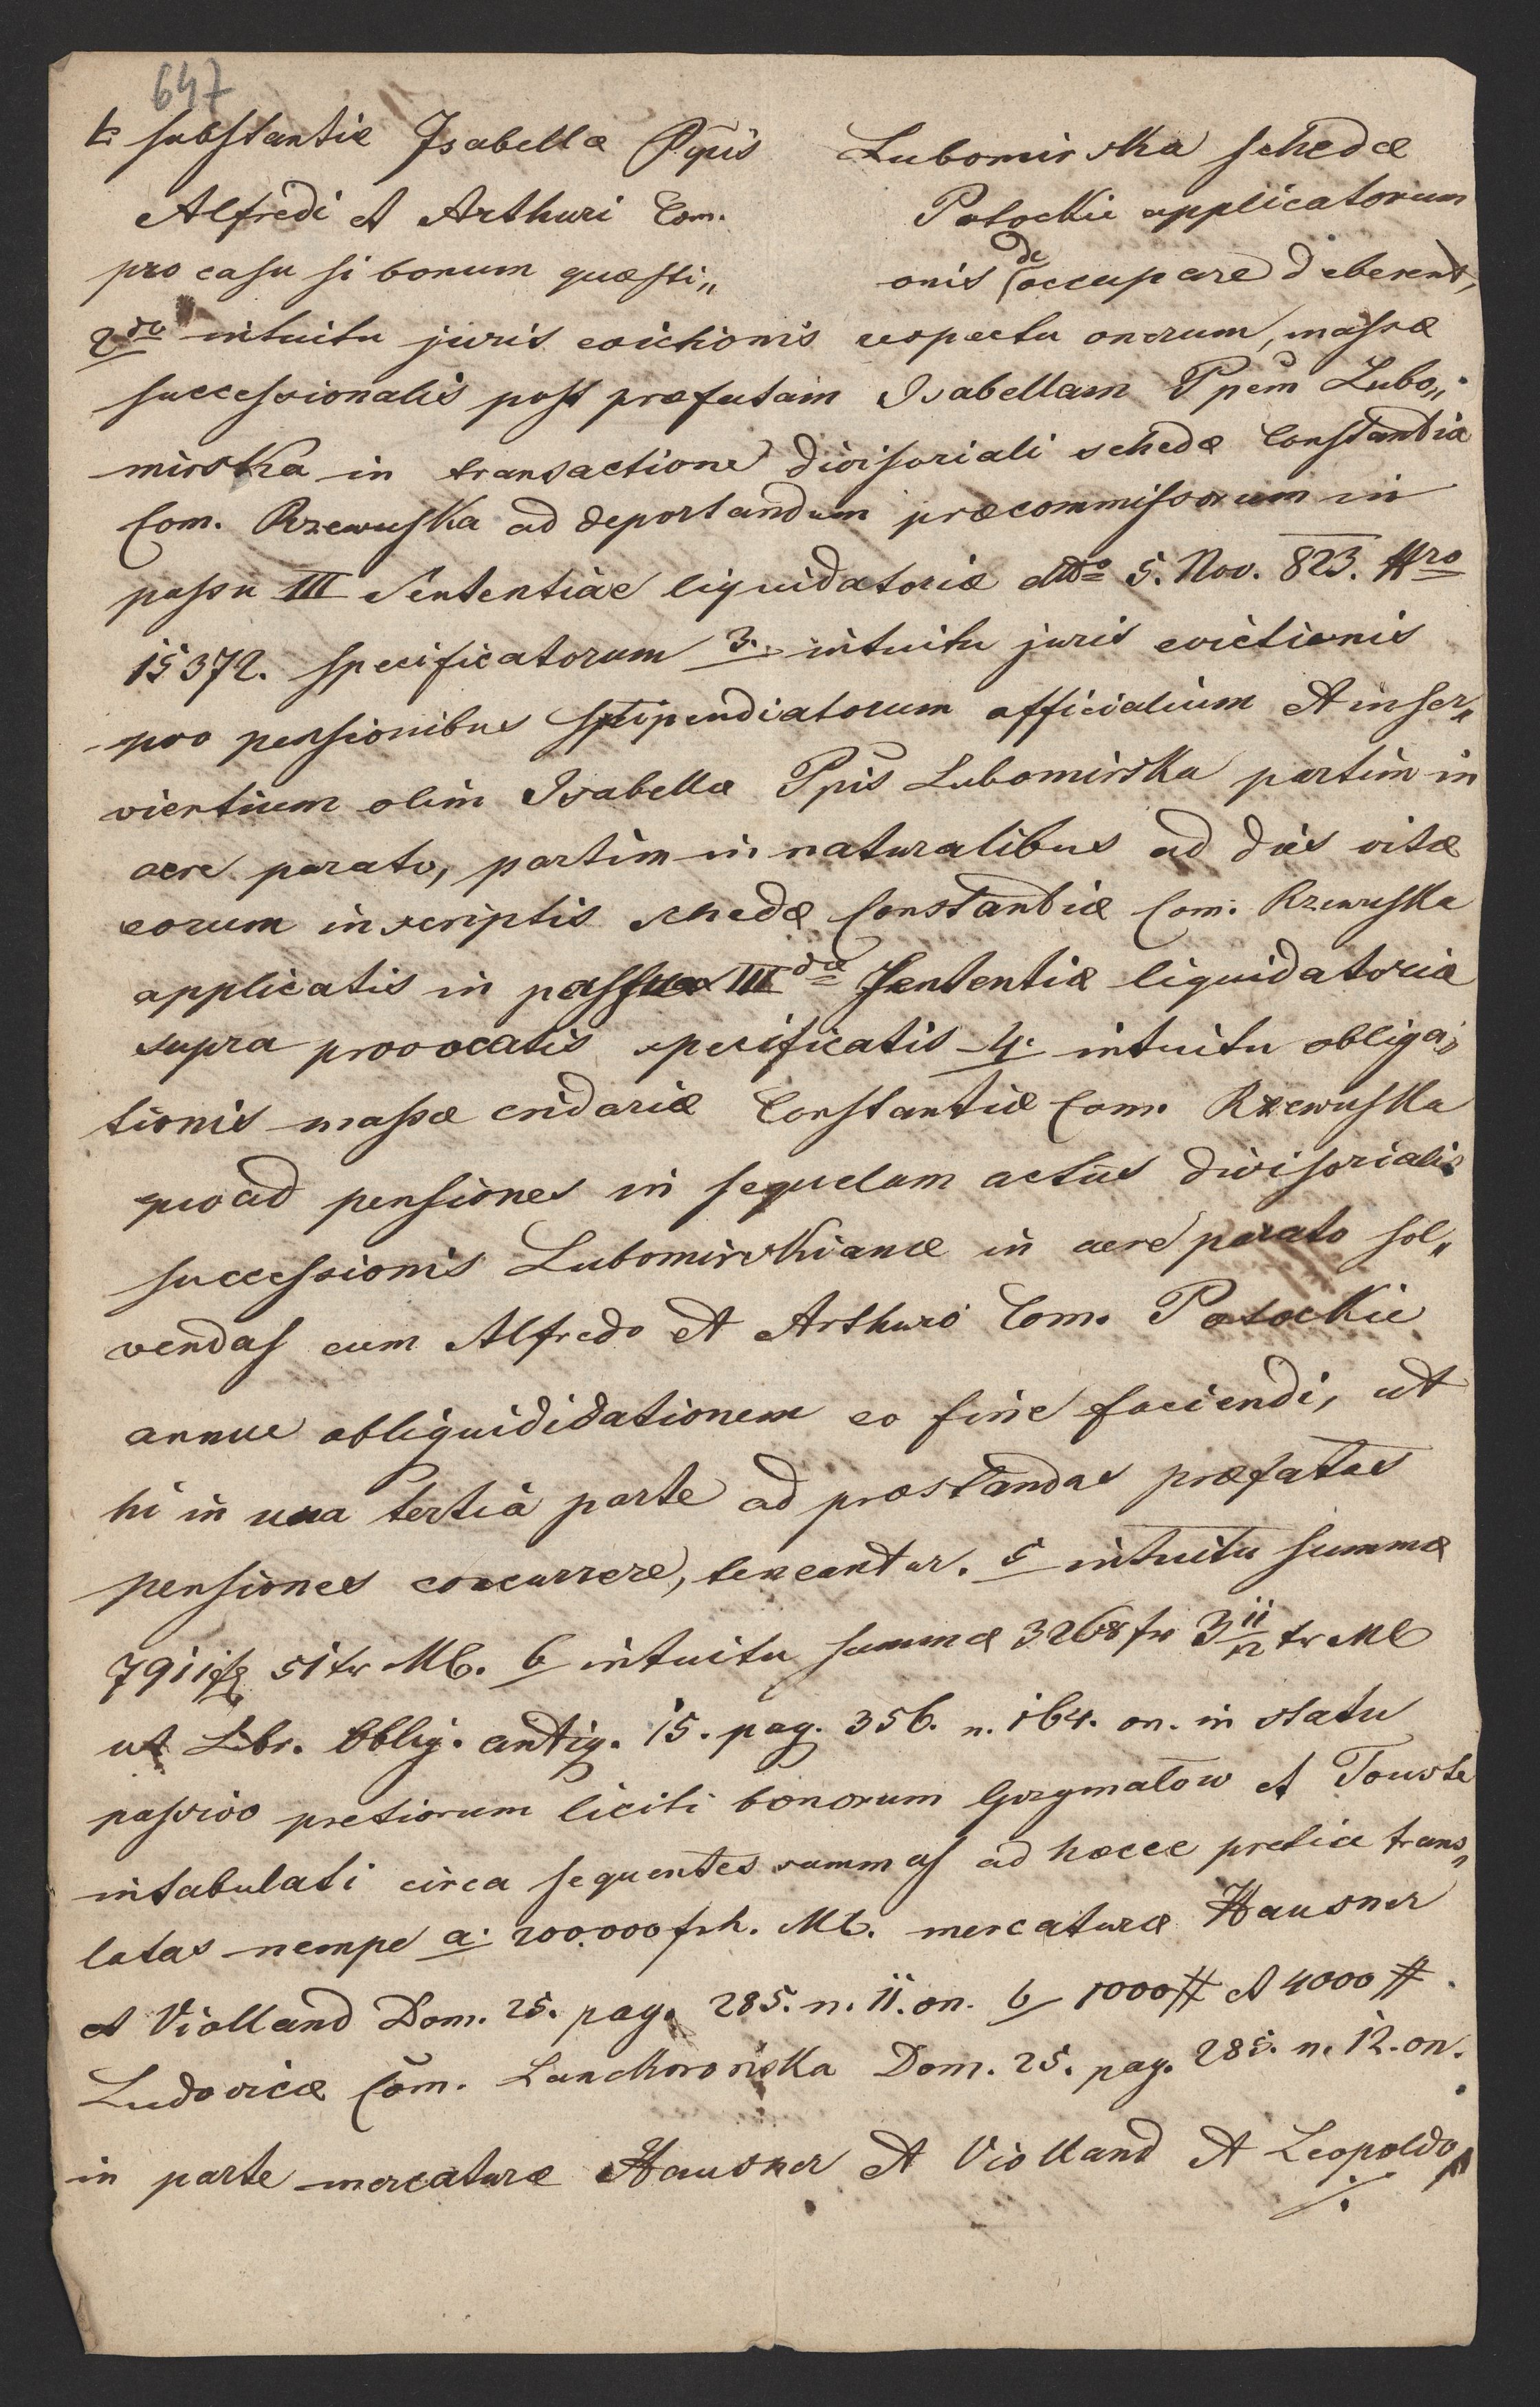 647
substantiæ Isabellæ Ppis Lubomirska schedæ
Alfredi et Arthuri Com. Potockie applicatorum
pro casu si bonum quæsti„ onis de occupare deberent,
2do intuitu juris evictionis respectu onerum, massæ
successionalis post præfatam Isabellam Ppem Lubo„
mirska in transactione divisoriali schedæ Constantiæ
Com. Rzewuska ad deportandum præcommissorum in
passu III Sententiæ liquidatoriæ ddo 5. Nov. 823. Nro
15372. specificatorum 3. intuitu juris evictionis
pro pensionibus stipendiatorum officialium et inser„
vientium olim Isabellæ Ppis Lubomirska partim in
aere parato, partim in naturalibus ad dies vitæ
eorum inscriptis schedæ Constantiæ Com. Rzewuska
applicatis in passu III Sententiæ liquidatoriæ
supra provocatis specificatis 4. intuitu obliga„
tionis massæ cridariæ Constantiæ Com. Rzewuska
quoad pensiones in sequelam actus divisorialis
successionis Lubomirskianæ in aere parato sol„
vendas cum Alfredo et Arthuro Com. Potockie
annue obliquididationem eo fine faciendi, ut
hi in una tertia parte ad præstandas præfatas
pensiones concurrere, teneantur. 5 intuitu summæ
7911 51 xr MC. 6 intuitu summæ 3268 fr 3 11/12 xr MC
ut Libr. Oblig. antiq. 15. pag. 356. n. 164. on. in statu
passivo pretiorum liciti bonorum Grzymałow et Touste
intabulati circa sequentes summas ad hæcce pretia trans„
latas nempe a. 200.000 frh. MC. mercaturæ Hausner
et Violland Dom. 25. pag. 285. n. 11. on. b/ 1000 # et 4000 #.
Ludovicæ Com. Lanckorońska Dom. 25. pag. 285. n. 12. on.
in parte mercaturæ Hausner et Violland et Leopoldo